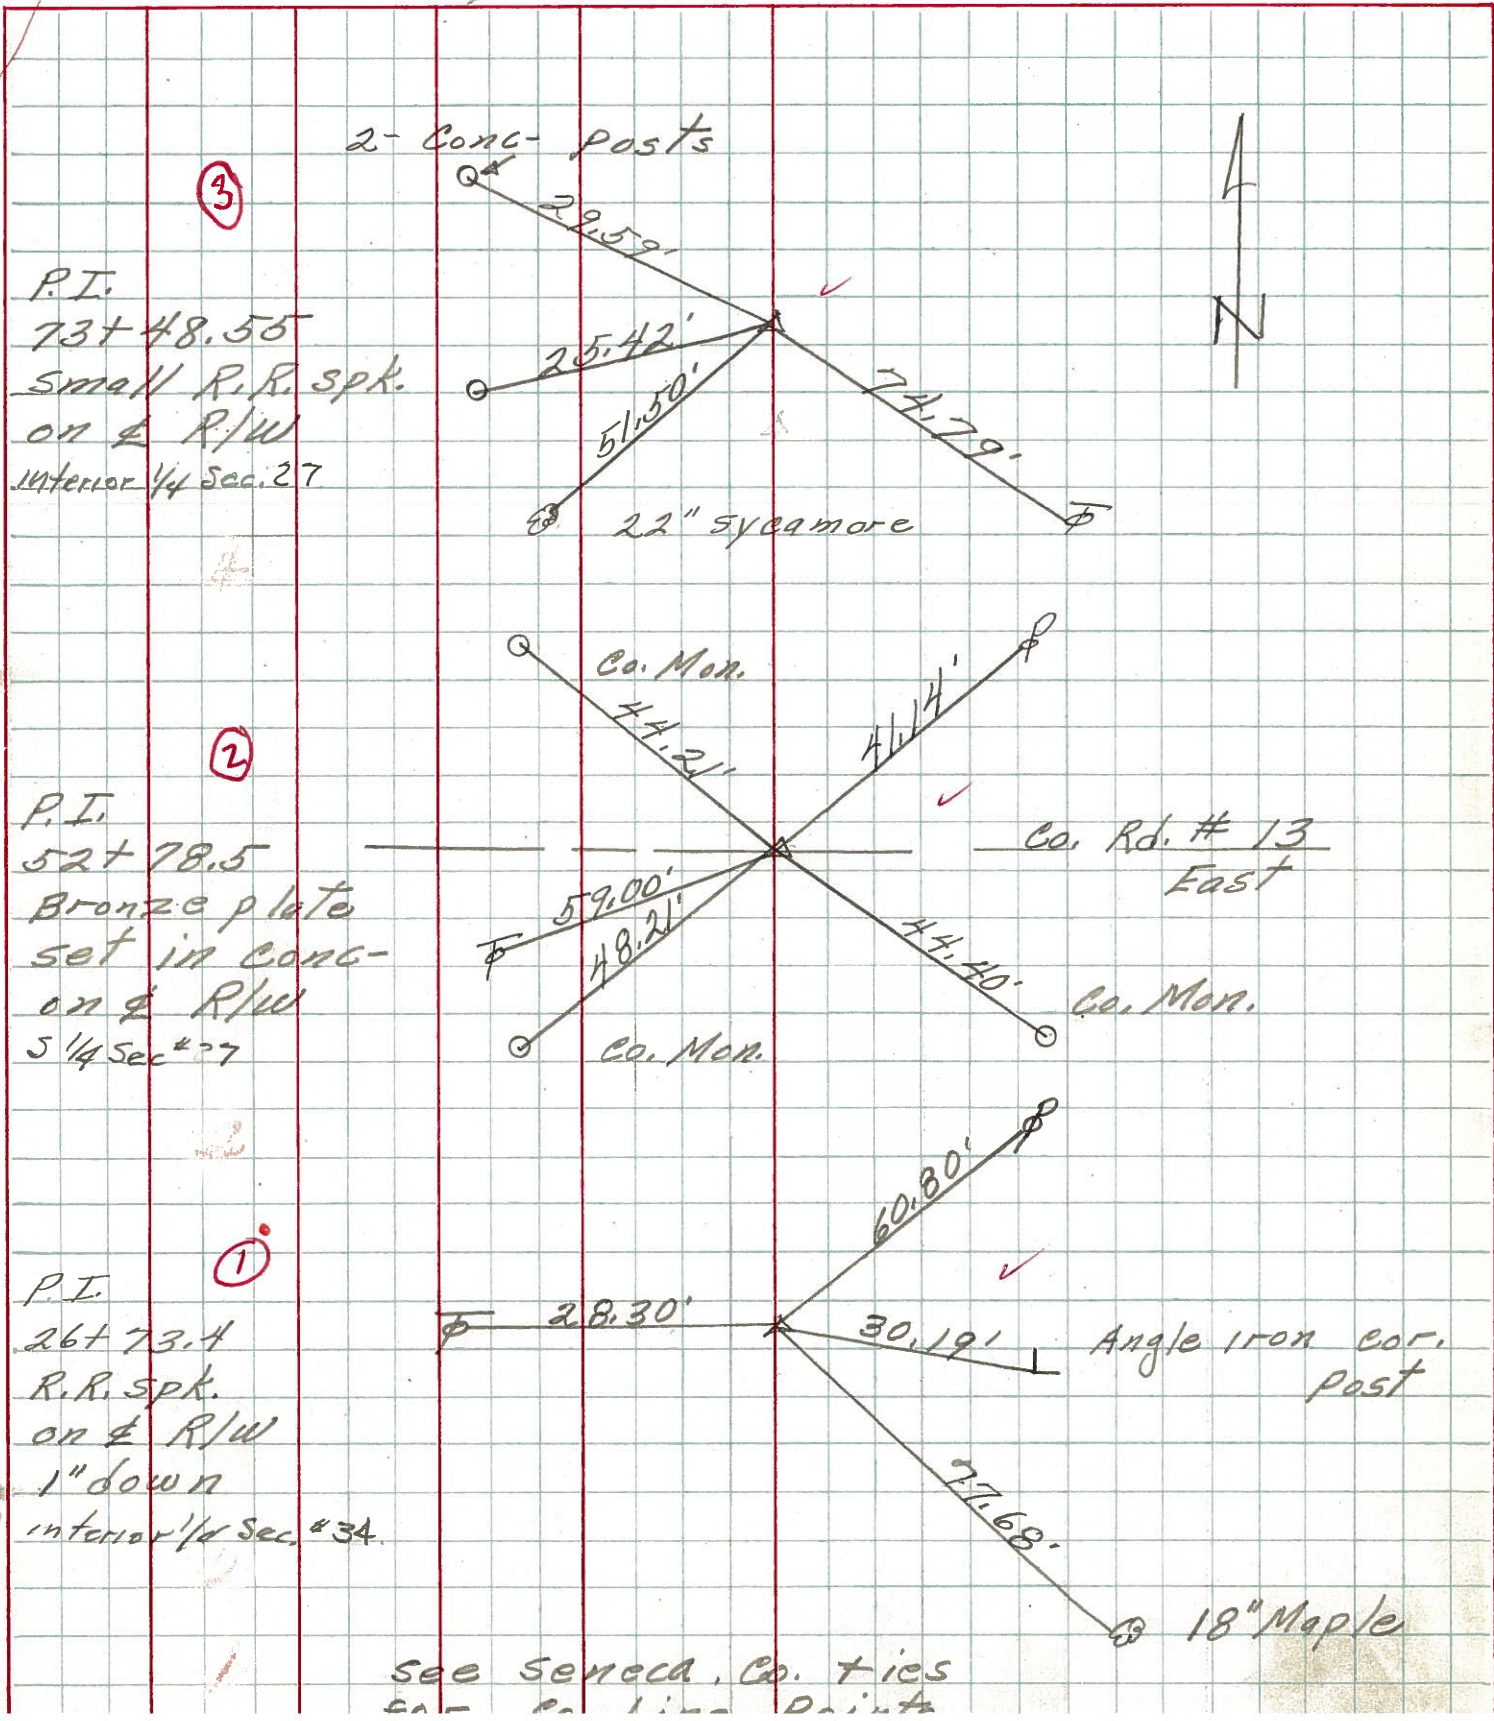 2- Conc- Posts
3
29.59'
P.I.
73+48.55
small R.R. spk.
on ℄ R/W
interior 1/4 Sec. 27
25.42'
51.50'
74.79'
22" sycamore
N
Co. Mon.
44.21'
41.14'
2
P.I.
52+78.5
Bronze plate
set in conc-
on ℄ R/W
S 1/4 Sec #27
Co. Rd. # 13
East
59.00'
48.21'
44.40'
Co. Mon.
Co. Mon.
60.80'
1
P.I.
26+73.4
R.R. spk.
on ℄ R/W
1" down
interior 1/4 Sec. #34
28.30'
30.19'
Angle Iron cor.
Post
77.68'
18" Maple
see Seneca. Co. ties
for Co Line Points